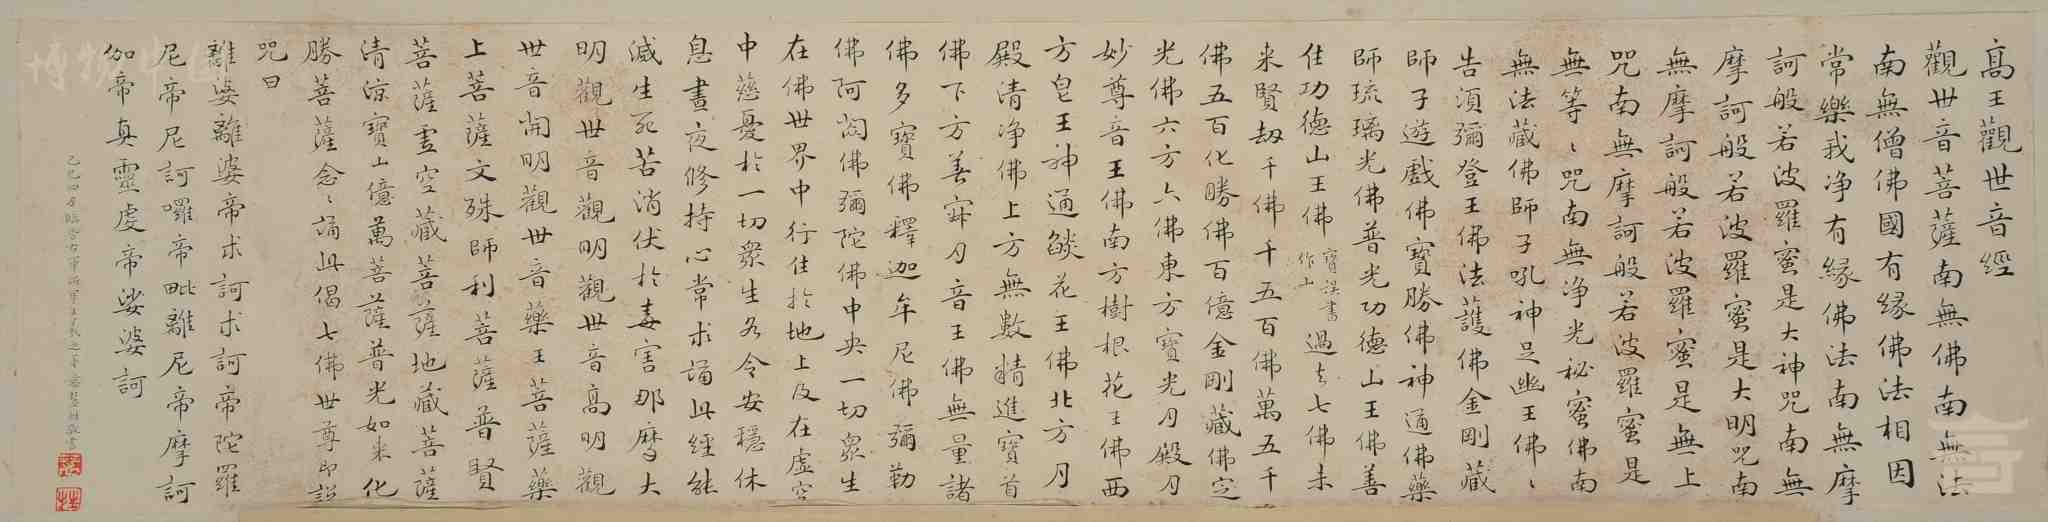 高王觀世音經
觀世音菩薩南無佛南無法
南無僧佛國有緣佛法相因
常樂我净有緣佛法南無摩
訶般若波羅蜜是大神咒南無
摩訶般若波羅蜜是大明咒南
無摩訶般若波羅蜜是無上
咒南無摩訶般若波羅蜜是
無等〻咒南無净光秘蜜佛南
無法藏佛師子吼神足幽王佛〻
告湏彌登王佛法護佛金剛藏
師子遊戲佛寶勝佛神通佛藥
師琉璃光佛普光功德山王佛善
住功德山王佛寶誤書作山過去七佛未
来賢劫千佛千五百佛萬五千
佛五百化勝佛百億金剛藏佛定
光佛六方六佛東方寶光月殿月
妙尊音王佛南方樹根花王佛西
方皂王神通燄花王佛北方月
殿清净佛上方無數精進寶首
佛下方善寂月音王佛無量諸
佛多寶佛釋迦牟尼佛彌勒
佛阿閦佛彌陀佛中央一切衆生
在佛世界中行住於地上及在虛空
中慈憂於一切衆生各令安穩休
息晝夜修持心常求誦此經能
滅生死苦消伏於毒害那摩大
明觀世音觀明觀世音高明觀
世音開明觀世音藥王菩薩藥
上菩薩文殊師利菩薩普賢
菩薩虛空藏菩薩地藏菩薩
清涼寶山億萬菩薩普光如来化
勝菩薩念〻誦此偈七佛世尊即說
咒曰
離婆離婆帝求訶求訶帝陀羅
尼帝尼訶囉帝毗離尼帝摩訶
伽帝真靈虔帝娑婆訶
乙巳四月臨晉右軍將軍王羲之書
博物中心